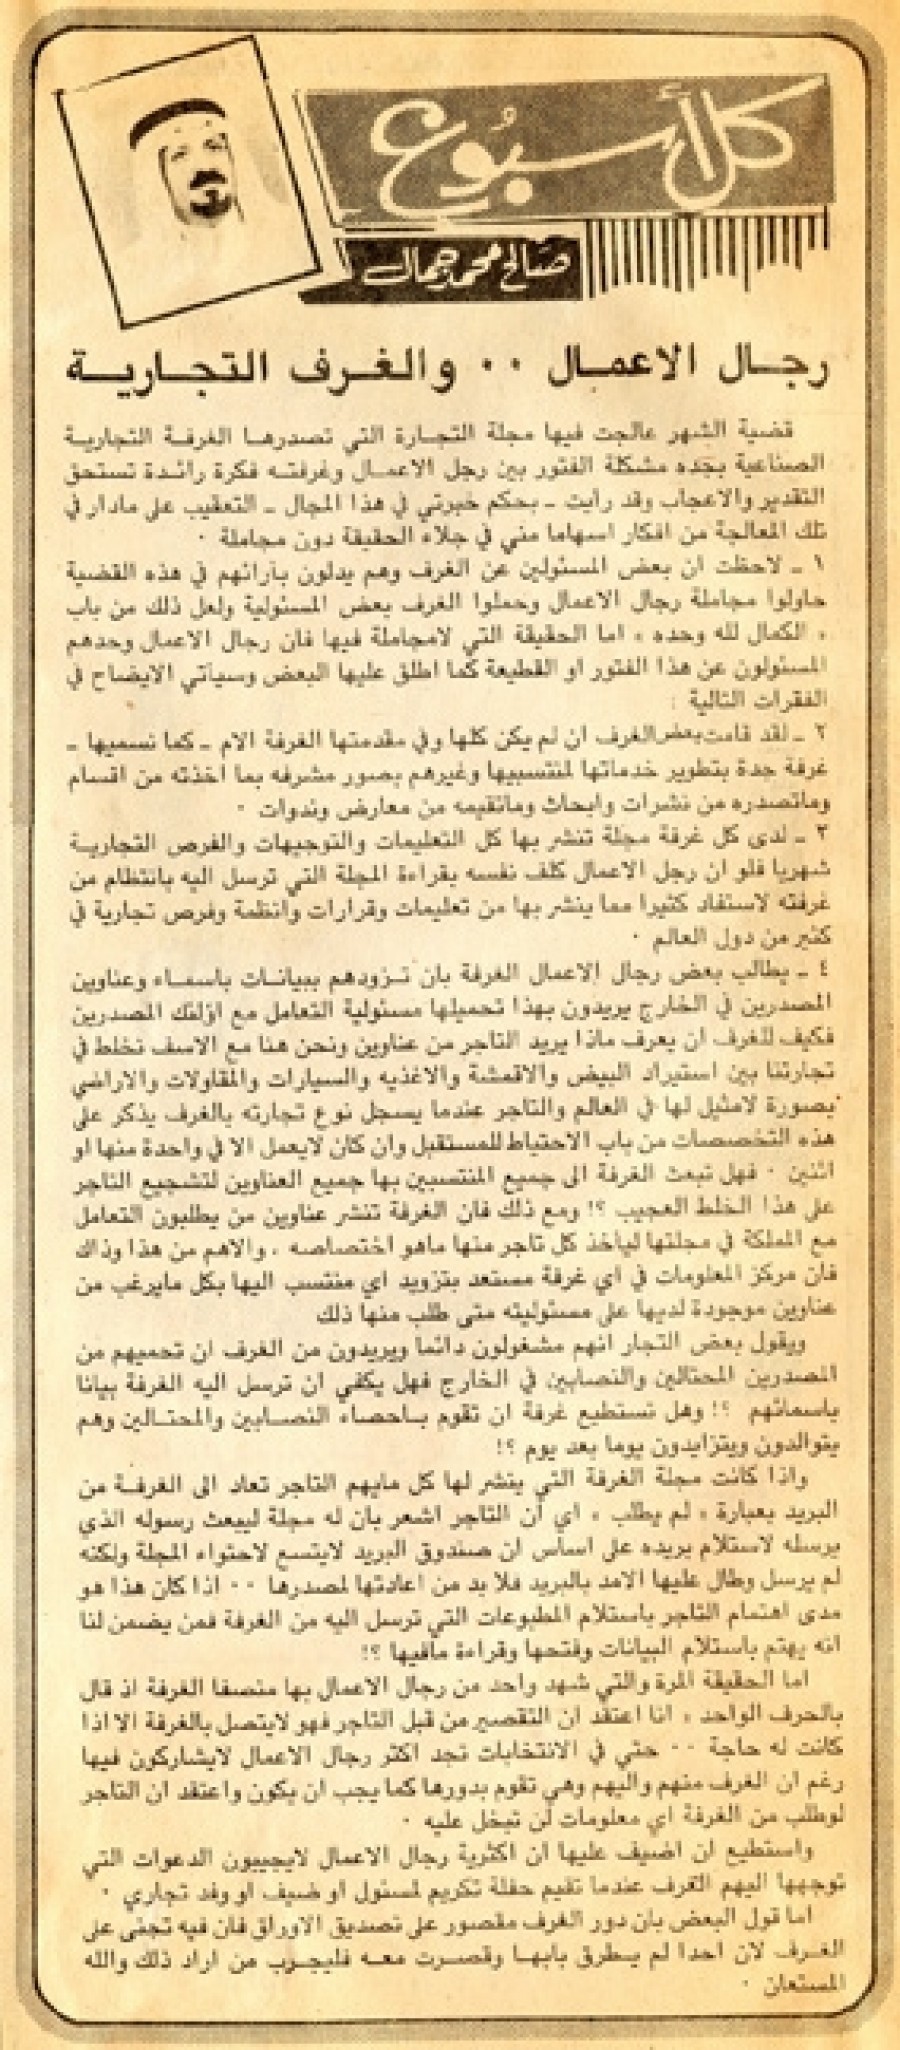 كل أسبوع
صالح محمد جمال
رجال الاعمال ٠٠ والغرف التجارية
قضية الشهر عالجت فيها مجلة التجارة التي تصدرها الغرفة التجارية
الصناعية بجده مشكلة الفتور بين رجل الاعمال وغرفته فكرة رائدة تستحق
التقدير والاعجاب وقد رايت ـ بحكم خبرتي في هذا المجال ـ التعقيب على مادار في
تلك المعالجة من افكار اسهاما مني في جلاء الحقيقة دون مجاملة ٠
١ ـ لاحظت ان بعض المسئولين عن الغرف وهم يدلون بآرائهم في هذه القضية
حاولوا مجاملة رجال الاعمال وحملوا الغرف بعض المسئولية ولعل ذلك من باب
« الكمال لله وحده » اما الحقيقة التي لامجاملة فيها فان رجال الاعمال وحدهم
المسئولون عن هذا الفتور او القطيعة كما اطلق عليها البعض وسيأتي الايضاح في
الفقرات التالية :
٢ ـ لقد قامت بعض الغرف ان لم يكن كلها وفي مقدمتها الغرفة الام ـ كما نسميها ـ
غرفة جدة بتطوير خدماتها لمنتسبيها وغيرهم بصور مشرفه بما اخذته من اقسام
وماتصدره من نشرات وابحاث وماتقيمه من معارض وندوات ٠
٣ ـ لدى كل غرفة مجلة تنشر بها كل التعليمات والتوجيهات والفرص التجارية
شهريا فلو ان رجل الاعمال كلف نفسه بقراءة المجلة التي ترسل اليه بانتظام من
غرفته لاستفاد كثيرا مما ينشر بها من تعليمات وقرارات وانظمة وفرص تجارية في
كثير من دول العالم ٠
٤ ـ يطالب بعض رجال الاعمال الغرفة بان تزودهم ببيانات باسماء وعناوين
المصدرين في الخارج يريدون بهذا تحميلها مسئولية التعامل مع اولئك المصدرين
فكيف للغرف ان يعرف ماذا يريد التاجر من عناوين ونحن هنا مع الاسف نخلط في
تجارتنا بين استيراد البيض والاقمشة والاغذيه والسيارات والمقاولات والاراضي
بصورة لامثيل لها في العالم والتاجر عندما يسجل نوع تجارته بالغرف يذكر على
هذه التخصصات من باب الاحتياط للمستقبل وان كان لايعمل الا في واحدة منها او
اثنين ٠ فهل تبعث الغرفة الى جميع المنتسبين بها جميع العناوين لتشجيع التاجر
على هذا الخلط العجيب ؟! ومع ذلك فان الغرفة تنشر عناوين من يطلبون التعامل
مع المملكة في مجلتها ليأخذ كل تاجر منها ماهو اختصاصه . والاهم من هذا وذاك
فان مركز المعلومات في اي غرفة مستعد بتزويد اي منتسب اليها بكل مايرغب من
عناوين موجودة لديها على مسئوليته متى طلب منها ذلك
ويقول بعض التجار انهم مشغولون دائما ويريدون من الغرف ان تحميهم من
المصدرين المحتالين والنصابين في الخارج فهل يكفي ان ترسل اليه الغرفة بيانا
باسمائهم ؟! وهل تستطيع غرفة ان تقوم باحصاء النصابين والمحتالين وهم
يتوالدون ويتزايدون يوما بعد يوم ؟!
واذا كانت مجلة الغرفة التي ينشر لها كل مايهم التاجر تعاد الى الغرفة من
البريد بعبارة « لم يطلب » اي أن التاجر اشعر بان له مجلة ليبعث رسوله الذي
يرسله لاستلام بريده على اساس ان صندوق البريد لايتسع لاحتواء المجلة ولكنه
لم يرسل وطال عليها الامد بالبريد فلا بد من اعادتها لمصدرها ٠٠ اذا كان هذا هو
مدى اهتمام التاجر باستلام المطبوعات التي ترسل اليه من الغرفة فمن يضمن لنا
انه يهتم باستلام البيانات وفتحها وقراءة مافيها ؟!
اما الحقيقة المرة والتي شهد واحد من رجال الاعمال بها منصفا الغرفة اذ قال
بالحرف الواحد « انا اعتقد ان التقصير من قبل التاجر فهو لايتصل بالغرفة الا اذا
كانت له حاجة ٠٠ حتي في الانتخابات تجد اكثر رجال الاعمال لايشاركون فيها
رغم ان الغرف منهم واليهم وهي تقوم بدورها كما يجب ان يكون واعتقد ان التاجر
لوطلب من الغرفة اي معلومات لن تبخل عليه ٠
واستطيع ان اضيف عليها ان اكثرية رجال الاعمال لايجيبون الدعوات التي
توجهها اليهم الغرف عندما تقيم حفلة تكريم لمسئول او ضيف او وفد تجاري ٠
اما قول البعض بان دور الغرف مقصور على تصديق الاوراق فان فيه تجنى على
الغرف لان احدا لم يطرق بابها وقصرت معه فليجرب من اراد ذلك والله
المستعان ٠